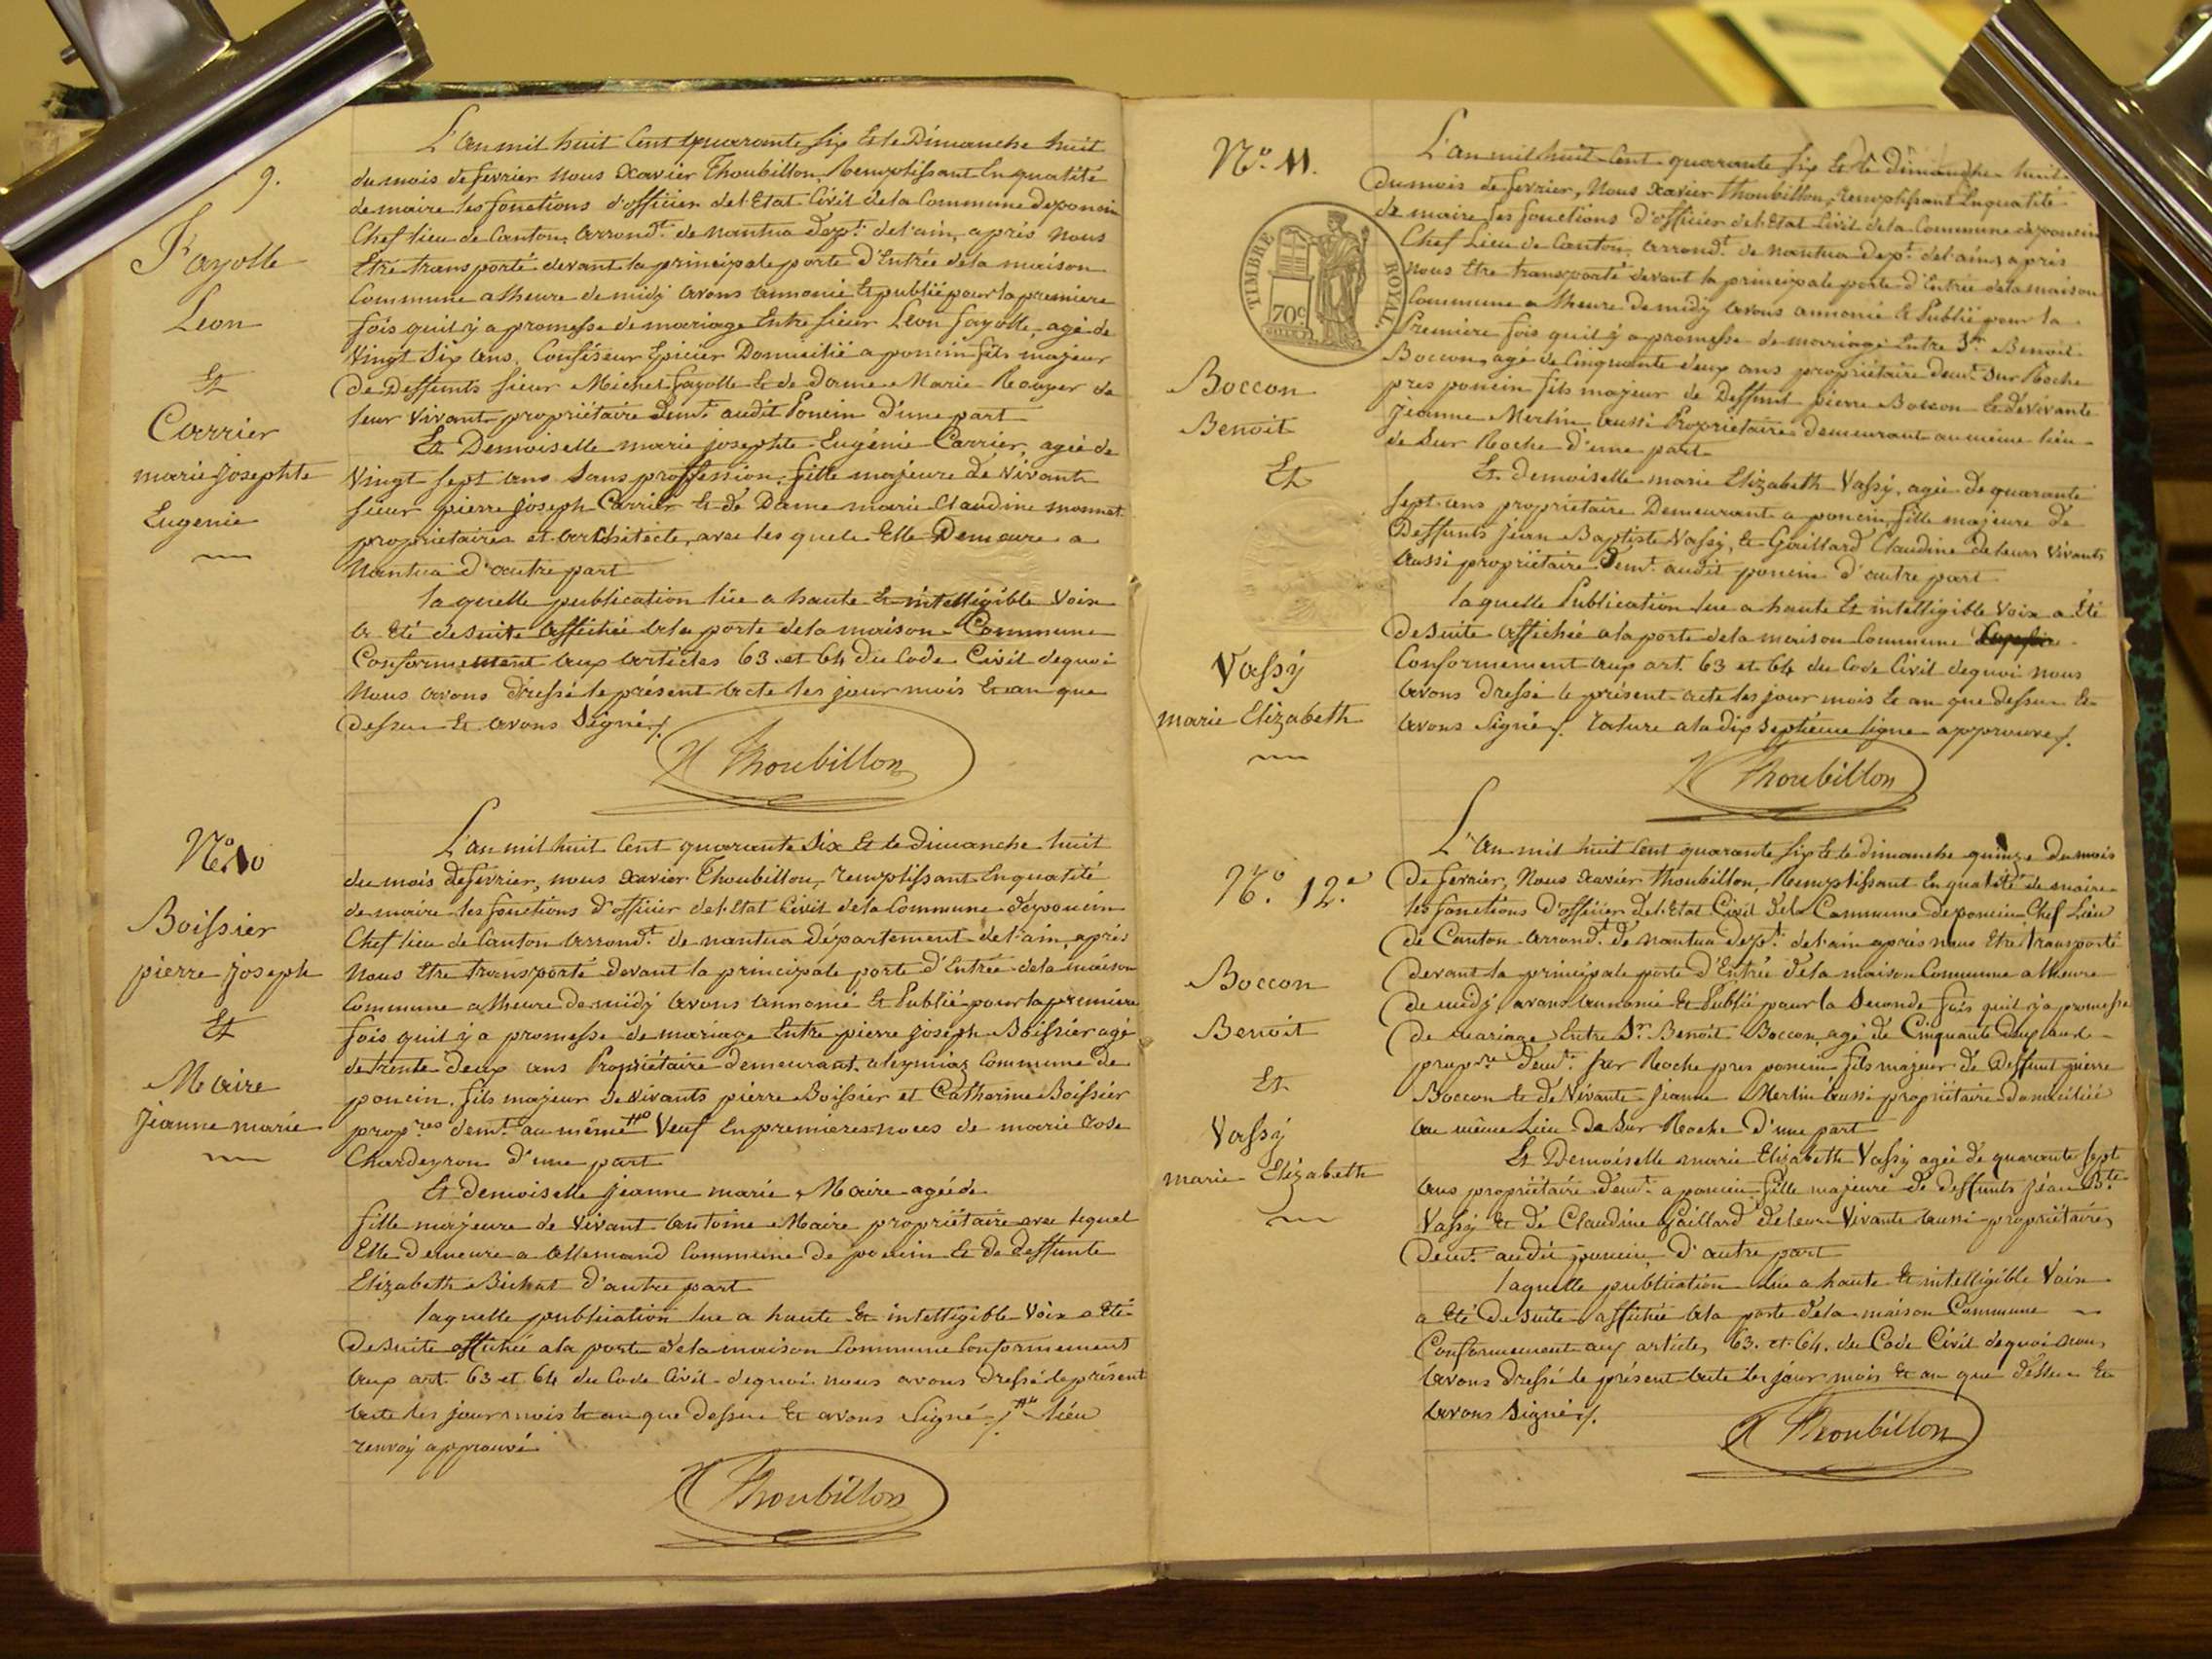 9.
Fayolle
Leon
Et
Carrier
marie josephte
Eugenie
L'an mil huit Cent quarante six Et le Dimanche huit
du mois de fevrier nous Xavier Thoubillon, Remplissant En qualité
de maire les fonctions d'officier de l'Etat Civil de la Commune de poncin
Chef lieu de Canton, arrond.t de nantua dep.t de l'ain, après nous
Etre transporté devant la principale porte d'Entrée de la maison
Commune a lheure de midy avons annoncé Et publié pour la premiere
fois quil y a promesse de mariage Entre sieur Léon fayolle, agé de
Vingt Six ans, Confiseur Epicier Domicilié a poncin fils majeur
De Deffunts sieur Michel fayolle Et de Dame Marie Rouyer de
leur vivant propriétaire dem.t audit Poncin D'une part
Et Demoiselle marie josephte Eugénie Carrier, agée de
Vingt sept ans Sans proffession, fille majeure de Vivants
sieur pierre joseph Carrier Et de Dame marie Claudine monnat
propriétaires et architecte, avec les quels Elle Demeure a
Nantua d'autre part
laquelle publication lue a haute Et intelligible Voix
a Eté de suite affichée a la porte de la maison Commune
Conformement aux articles 63 et 64 du Code Civil dequoi
Nous avons dressé le présent acte les jour mois Et an que
dessus Et avons Signé/.
X Thoubillon
No. 10
Boissier
pierre joseph
Et
Maire
jeanne marie
L'an mil huit Cent quarante Six Et le Dimanche huit
du mois de fevrier, nous Xavier Thoubillon, remplissant En qualité
de maire les fonctions d'officier de l'Etat Civil de la Commune de poncin
Chef lieu de Canton arrond.t de nantua département de l'ain, après
Nous Etre transporté devant la principale porte d'Entrée de la maison
Commune a lheure de midy avons annoncé Et Publié pour la premiere
fois quil y a promesse de mariage Entre pierre joseph Boissier agé
de trente deux ans Propriétaire demeurant a leymiaz Commune de
poncin, fils majeur de vivants pierre Boissier et Catherine Boissier
prop.res dem.t au même Veuf En premieres noces de marie rose
Chardeyron d'une part
Et demoiselle jeanne marie Maire agée de
fille majeure de vivant antoine Maire propriétaire avec lequel
Elle demeure a allemand Commune de poncin Et de deffunte
Elizabeth Bichat d'autre part
laquelle publication lue a haute Et intelligible Voix a Eté
De suite affichée a la porte de la maison Commune Conformement
aux art. 63 et 64 du Code Civil dequoi nous avons dressé le présent
acte les jour mois Et an que dessus Et avons Signé/. lieu
renvoy approuvé
X Thoubillon
No. 11.
TIMBRE ROYAL.
70c
Boccon
Benoit
Et
Vassy
marie Elizabeth
L'an mil huit Cent quarante six Et le dimanche huit
Du mois de fevrier, Nous Xavier Thoubillon, Remplissant En qualité
de maire les fonctions D'officier de l'Etat Civil de la Commune de poncin
Chef Lieu de Canton, arrond.t de nantua Dep.t de l'ain, après
nous Etre transporté devant la principale porte d'Entrée de la maison
Commune a lheure de midy avons annoncé Et Publié pour la
Premiere fois quil y a promesse de mariage Entre S.r Benoit
Boccon, agé de Cinquante deux ans propriétaire dem.t Sur Roche
près poncin fils majeur de Deffunt pierre Boccon Et de vivante
jeanne Merlin aussi Propriétaire demeurant au même lieu
de Sur Roche d'une part
Et demoiselle marie Elizabeth Vassy, agée de quarante
sept ans propriétaire Demeurant a poncin, fille majeure de
Deffunts jean Baptiste Vassy, Et Gaillard Claudine de leurs vivants
aussi propriétaire dem.t audit poncin d'autre part
laquelle Publication lue a haute Et intelligible Voix a Eté
De suite affichée a la porte de la maison Commune
Conformement aux art. 63 et 64 du Code Civil dequoi nous
avons dressé le présent acte les jour mois Et an que dessus Et
avons Signé/. rature a la dix septieme ligne approuvé/.
X Thoubillon
No. 12.e
Boccon
Benoit
Et
Vassy
marie Elizabeth
L'an mil huit Cent quarante six Et le dimanche quinze Du mois
De fevrier, Nous Xavier Thoubillon, Remplissant En qualité de maire
les fonctions D'officier de l'Etat Civil de la Commune de poncin Chef Lieu
de Canton arrond.t de nantua Dep.t de l'ain après nous Etre transporté
devant la principale porte D'Entrée de la maison Commune a lheure
De midy avons annoncé Et Publié pour la Seconde fois quil y a promesse
De mariage Entre S.r Benoit Boccon agé de Cinquante deux ans
prop.re dem.t sur Roche près poncin fils majeur de Deffunt pierre
Boccon Et de Vivante jeanne Merlin aussi propriétaire Domiciliée
au même Lieu De Sur Roche D'une part
Et Demoiselle marie Elizabeth Vassy agée de quarante sept
ans propriétaire dem.t a poncin fille majeure de deffunts jean B.te
Vassy Et de Claudine Gaillard de leur Vivante aussi propriétaires
dem.t audit poncin, D'autre part
laquelle publication lue a haute Et intelligible Voix
a Eté De suite affichée a la porte de la maison Commune
Conformement aux articles 63. et 64. du Code Civil dequoi nous
avons dressé le présent acte les jour mois Et an que dessus Et
avons Signé/.
X Thoubillon